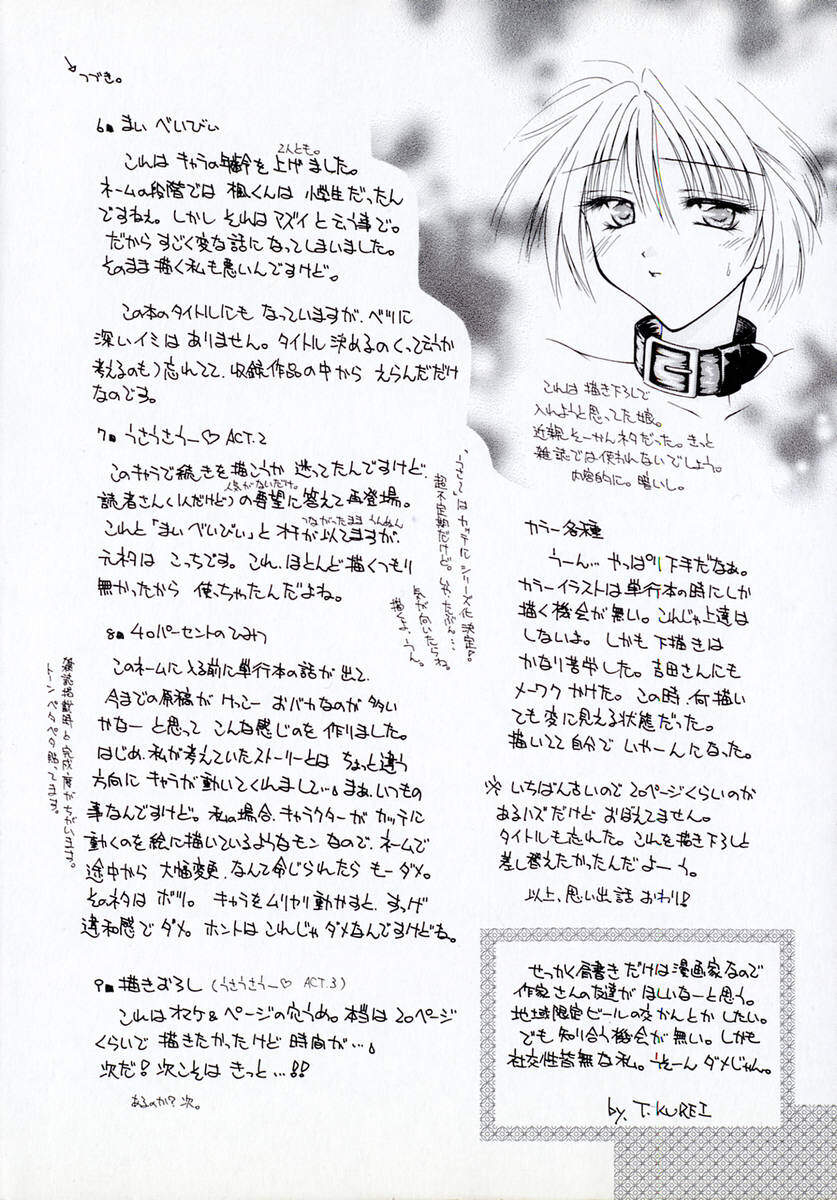 つづき。
6■ まい べいびい
これは キャラの年齢を上げました。
2人とも。
ネームの段階では 楓くんは 小学生だったん
ですねぇ。しかし それは マズイ と云う事で。
だから すごく変な話に なってしまいました。
そのまま描く私も悪いんですけど。
この本のタイトルにも なっていますが、べつに
深いイミは ありません。タイトル 決めるの(って云うか
考えるのも)忘れてて、収録作品の中から えらんだだけ
なのです。
7■ うさうさうー♡ ACT.2
このキャラで続きを描こうか 迷ってたんですけど、
人気がないだけ。
読者さん(1人だけど)の要望に答えて再登場。
これと「まい べいびい」と オチが似てますが、
元ネタは こっちです。これ、ほとんど描くつもり
無かったから 使っちゃったんだよね。
超不定期だけど。
8■ 40パーセントのひまわり
このネームに入る前に単行本の話が 出て、
今までの原稿が けっこー おバカなのが 多い
かなー と思って こんな感じのを 作りました。
はじめ、私が考えていたストーリーとは ちょっと違う
方向に キャラが動いてくれまして…。まぁ、いつもの
事なんですけど。私の場合、キャラクターが カッテに
動くのを絵に描いているようなモン なので、ネームで
途中から 大幅変更、なんて命じられたら もーダメ。
そのネタは ボツ。キャラをムリヤリ動かすと、すっげ
違和感で ダメ。ホントは これじゃダメなんですけどね。
雑誌掲載時と完成度がちがいます。
トーン ペタペタ貼ってます。
9■ 描きおろし(うさうさうー♡ ACT.3)
これは オマケ&ページの穴うめ。本当は 20ページ
くらいで 描きたかったけど 時間が…。
次だ! 次こそは きっと…!!
あるのか? 次。
これは描き下ろしで
入れようと思ってた娘。
近親そーかんネタだった。きっと
雑誌では使われないでしょう。
内容的に。暗いし。
カラー各種
うーん… やっぱり下手だなぁ。
カラーイラストは単行本の時にしか
描く機会が無い。これじゃ上達は
しないよ。しかも 下描きは
かなり苦労した。吉田さんにも
メーワク かけた。この時、何描い
ても変に見える状態だった。
描いてて自分で いやーんになった。
※ いちばん古いので 20ページくらいのが
あるハズだけど おぼえてません。
タイトルも忘れた。これを描き下ろしと
差し替えたかったんだよーう。
以上、思い出話 おわり!
せっかく肩書きだけは漫画家なので
作家さんの友達が ほしいなーと思う。
地域限定ビールの交かんとか したい。
でも 知り合う機会が 無い。しかも
社交性皆無な私。うそーん ダメじゃん。
by. T.KUREI